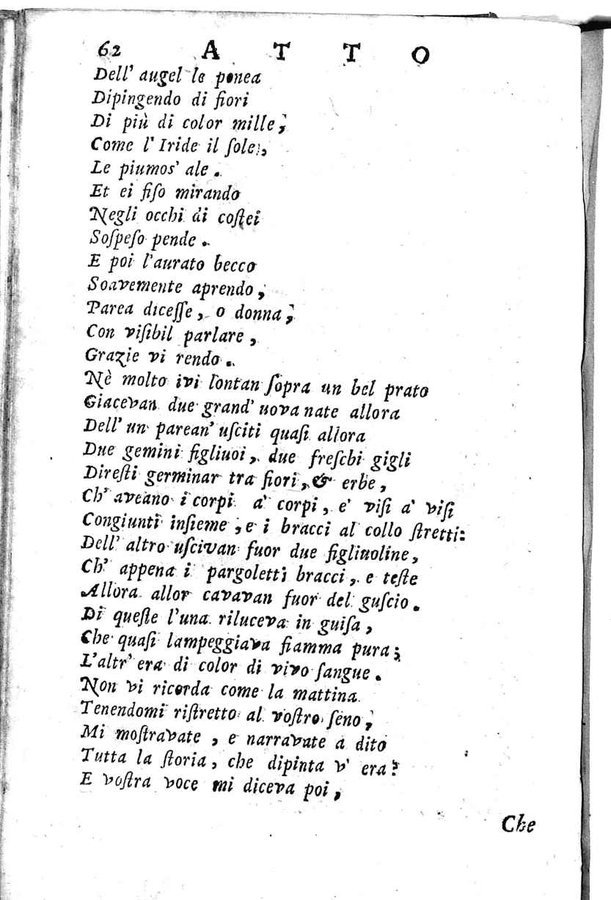 62 ATTO
Dell' augel le ponea
Dipingendo di fiori
Di più di color mille;
Come l'Iride il sole,
Le piumos' ale.
Et ei fiso mirando
Negli occhi di costei
Sospeso pende.
E poi l'aurato becco
Soavemente aprendo;
Parea dicesse, o donna;
Con visibil parlare,
Grazie vi rendo.
Nè molto ivi lontan sopra un bel prato
Giacevan due grand' uova nate allora
Dell' un parean' usciti quasi allora
Due gemini figliuoi, due freschi gigli
Diresti germinar tra fiori, & erbe,
Ch' aveano i corpi a' corpi, e' visi a' visi
Congiunti insieme, e i bracci al collo stretti:
Dell' altro uscivan fuor due figliuoline,
Ch' appena i pargoletti bracci, e teste
Allora allor cavavan fuor del guscio.
Di queste l'una riluceva in guisa,
Che quasi lampeggiava fiamma pura;
L'altr' era di color di vivo sangue.
Non vi ricorda come la mattina
Tenendomi ristretto al vostro seno;
Mi mostravate, e narravate a dito
Tutta la storia, che dipinta v' era?
E vostra voce mi diceva poi,
Che